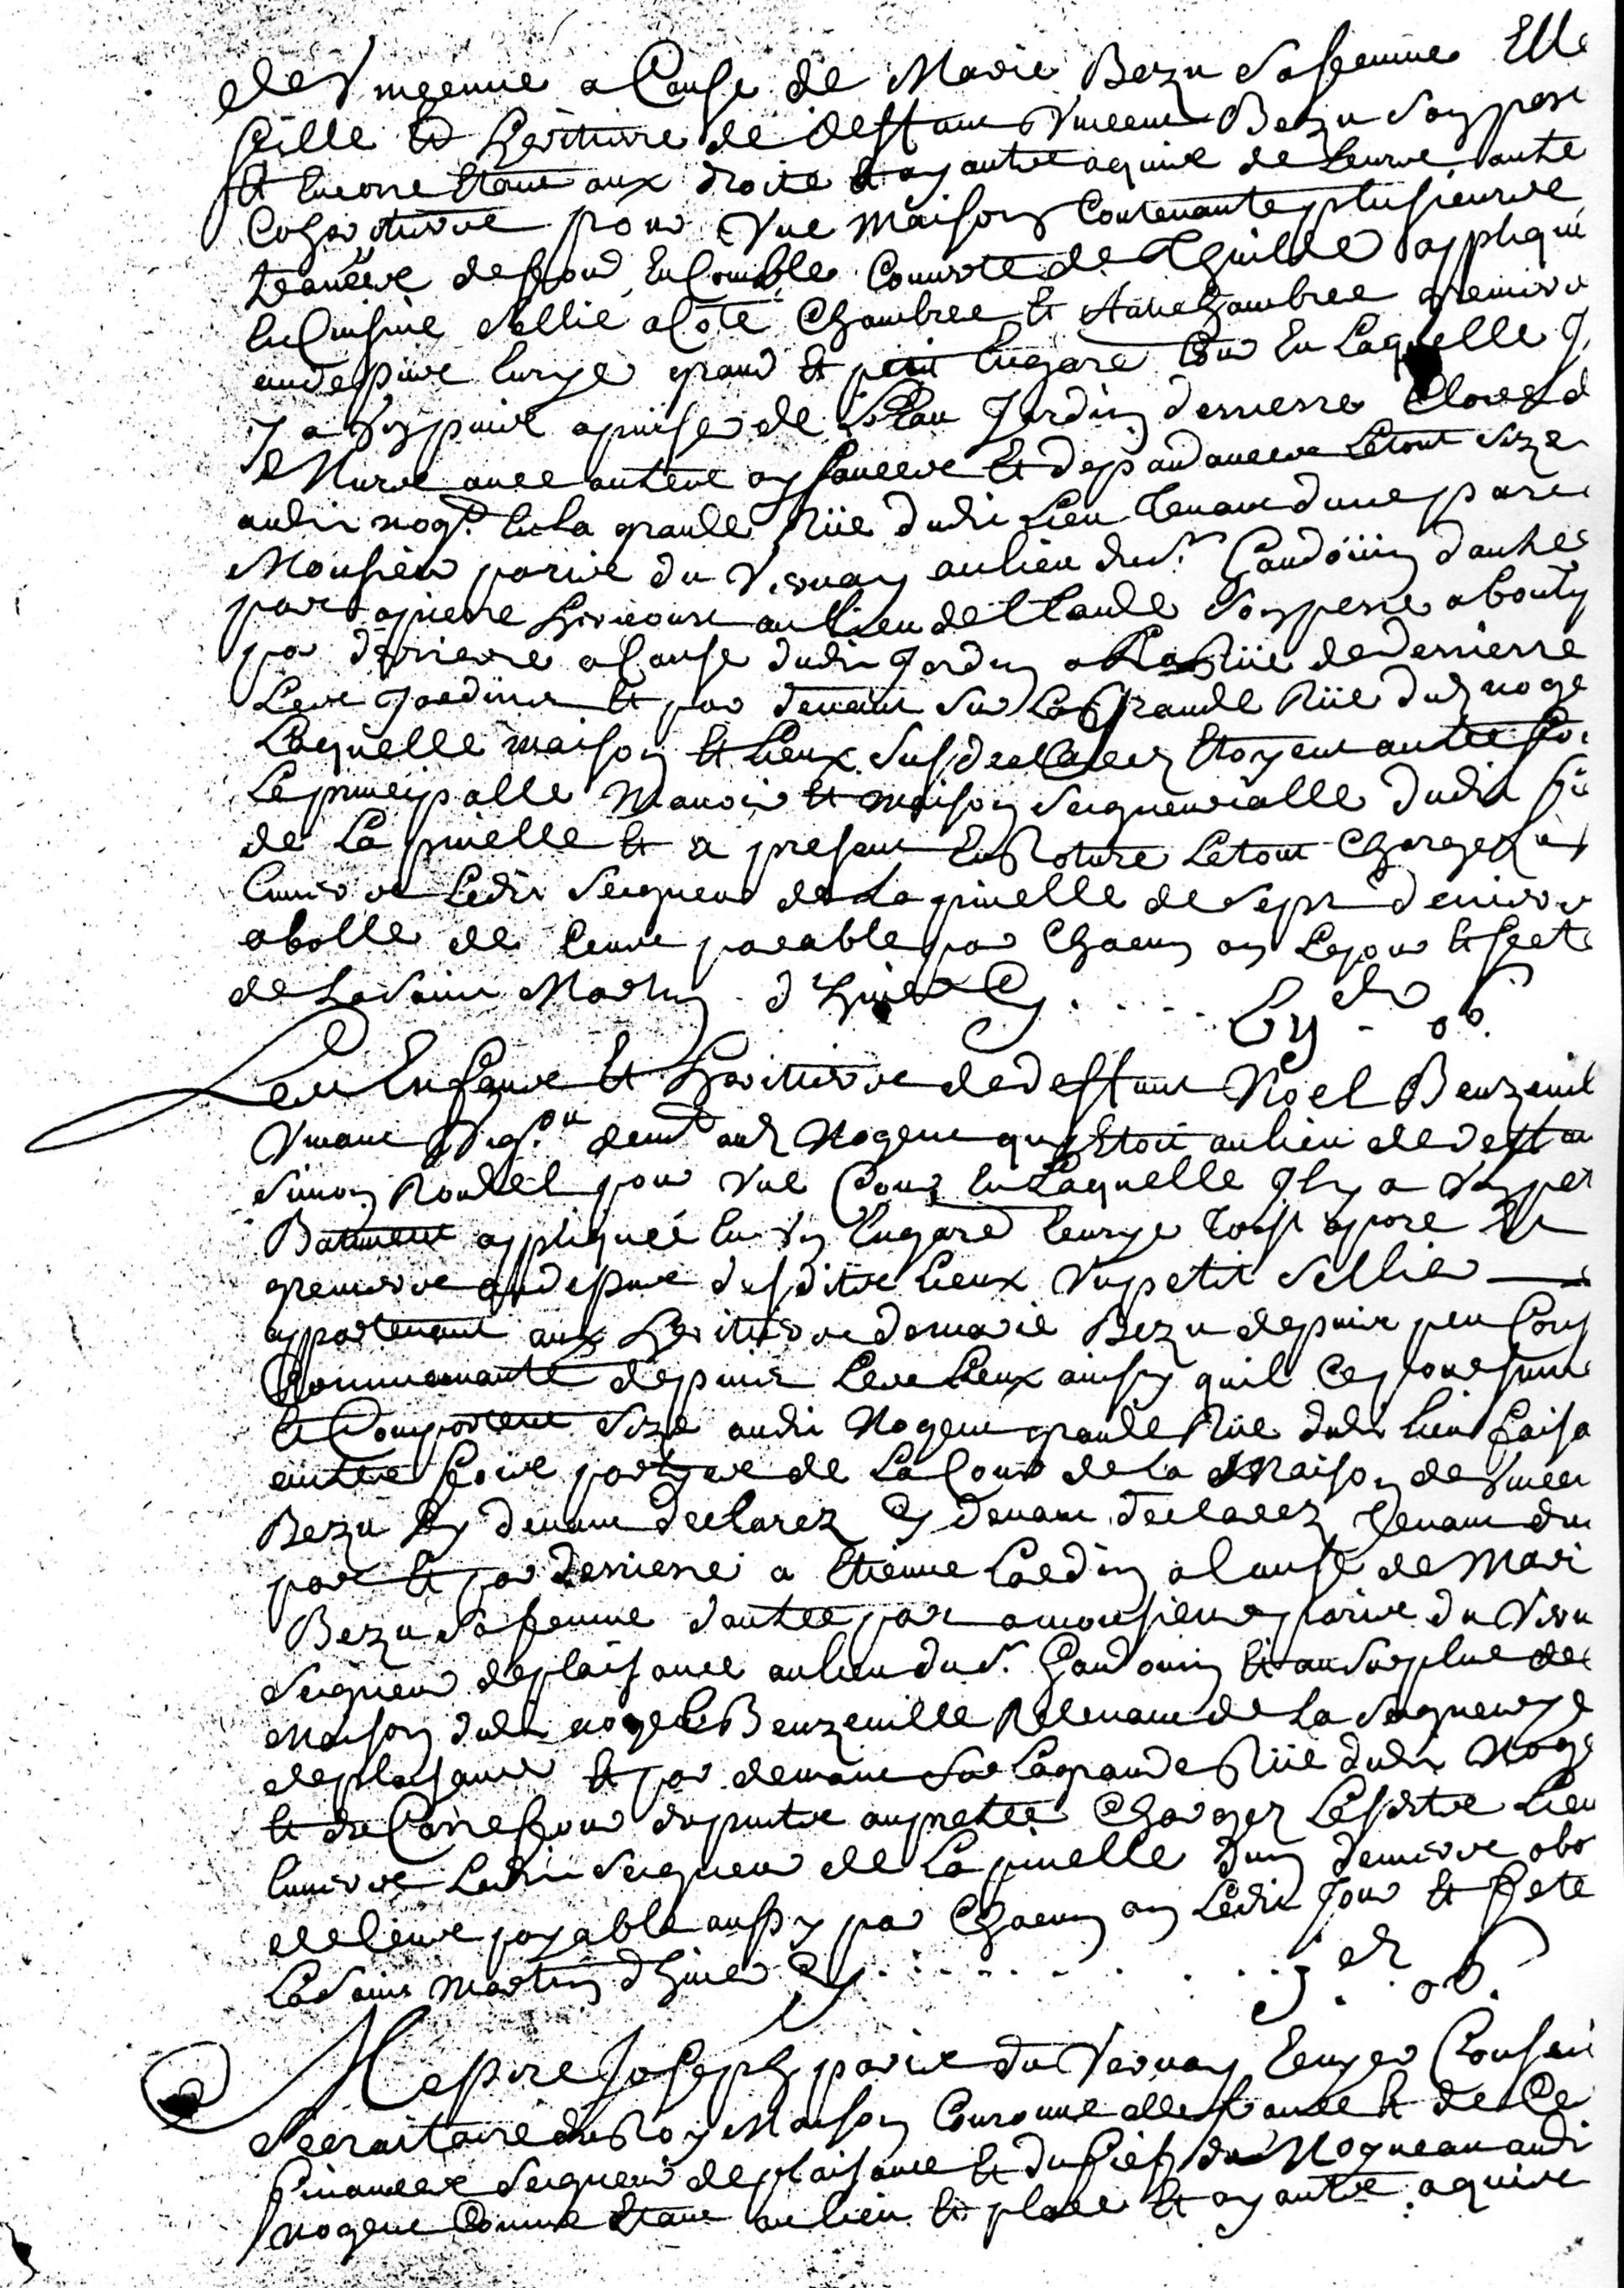 de Vincennes a Cause de Marie Bezu Sa femme Elle
fille Et heritiere de deffunt Vincent Bezu Son pere
Et Encorre Etant aux droits Et ayantes aquis de Leurs autre
Coheritiers pour Une Maison Contenante plusieurs
travées de fond En Comble Couverte de Thuille appliqué
En Cuisine Sellié a Coté Chambres Et Antichambres greniers
au dessus Ecurye grand Et petit Engard Cour En Laquelle Il
y a Un puis a puiser de L'Eau Jardin derriere Clos d
Murs avec autres aysances Et dependances Le tout Size
audit nog.t En La grande Rüe dudit Lieu tenant d'une part
Monsieur paris du Vernay au lieu du S.r Gaudoüin d'autre
part a pierre hericourt au lieu de Claude Son pere abouty
par derriere a Cause dudit Jardin a La Rüe de derriere
Les Jardins Et par devant Sur La Grande Rüe dud noge
Laquelle maison Et Lieux Susdeclarez Etoyent autres fo
Le principalle Manoir Et maison Seigneurialle dudit fi
de La pinelle Et a present En Roture Le tout Chargez
Envers Ledit Seigneur de La pinelle de Sept deniers
obolle de Cens payable par Chacun an Le jour Et feste
de La Saint Martin d'hiver Cy . . . . . vij d. ob.
Les Enfans Et heritiers de deffunt Noel Beuzevil
Vivant Vig.on dem.t aud Nogent qui Etoit au lieu de deffun
Simon Rouzel pour Une Cour En Laquelle Il y a Un pet
Batiment appliquée En Un Engard Ecurye toist a porc Et
greniers au dessus desdits Lieux Un petit Sellier
appartenant aux heritiers de marie Bezu depuis peu Cons
Communauté depuis Les Lieux ainsy quil Ce poursuive
Et Comportent Size audit Nogent grande Rüe dudit Lieu faisa
autres fois partye de La Cour de La Maison de Vincen
Bezu Cy devant declarez Cy devant declarez tenant du
part Et par derriere a Etienne Cardin a Cause de Mari
Bezu Sa femme d'autre part a monsieur paris du Vern
Seigneur de plaisance au lieu du S.r Gaudouin Et au Surplus de
Maison dudit noel Beuzeville Relevant de La Seigneurye
de plaisance Et par devant Sur La grande Rüe dudit Noge
Et du Carrefour du puits au pretre Chargez Lesdits Lieu
Envers Ledit Seigneur de La pinelle d'un deniers obo
de Cens payable aussy par Chacun an Ledit Jour Et feste
La Saint Martin d'hiver Cy . . . . . . . j d. ob.
Messire Joseph paris du Vernay Ecuyer Conseil
Secraitaire du Roy Maison Couronne de france Et de Ce
finances Seigneur de plaisance Et du fief du Moyneau audi
nogent Comme Etant au lieu Et place Et ayantes aquis